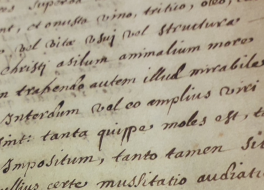 superba
nt, et onusta vino, tritico, oleo,
vel vitæ usui vel structura
Christi asilum animalium more
n trahendo autem illud mirabile
Interdum vel eo amplius viri
int: tanta quippe moles est, t
impositum, tanto tamen si
ullius certe mussitatio audiat